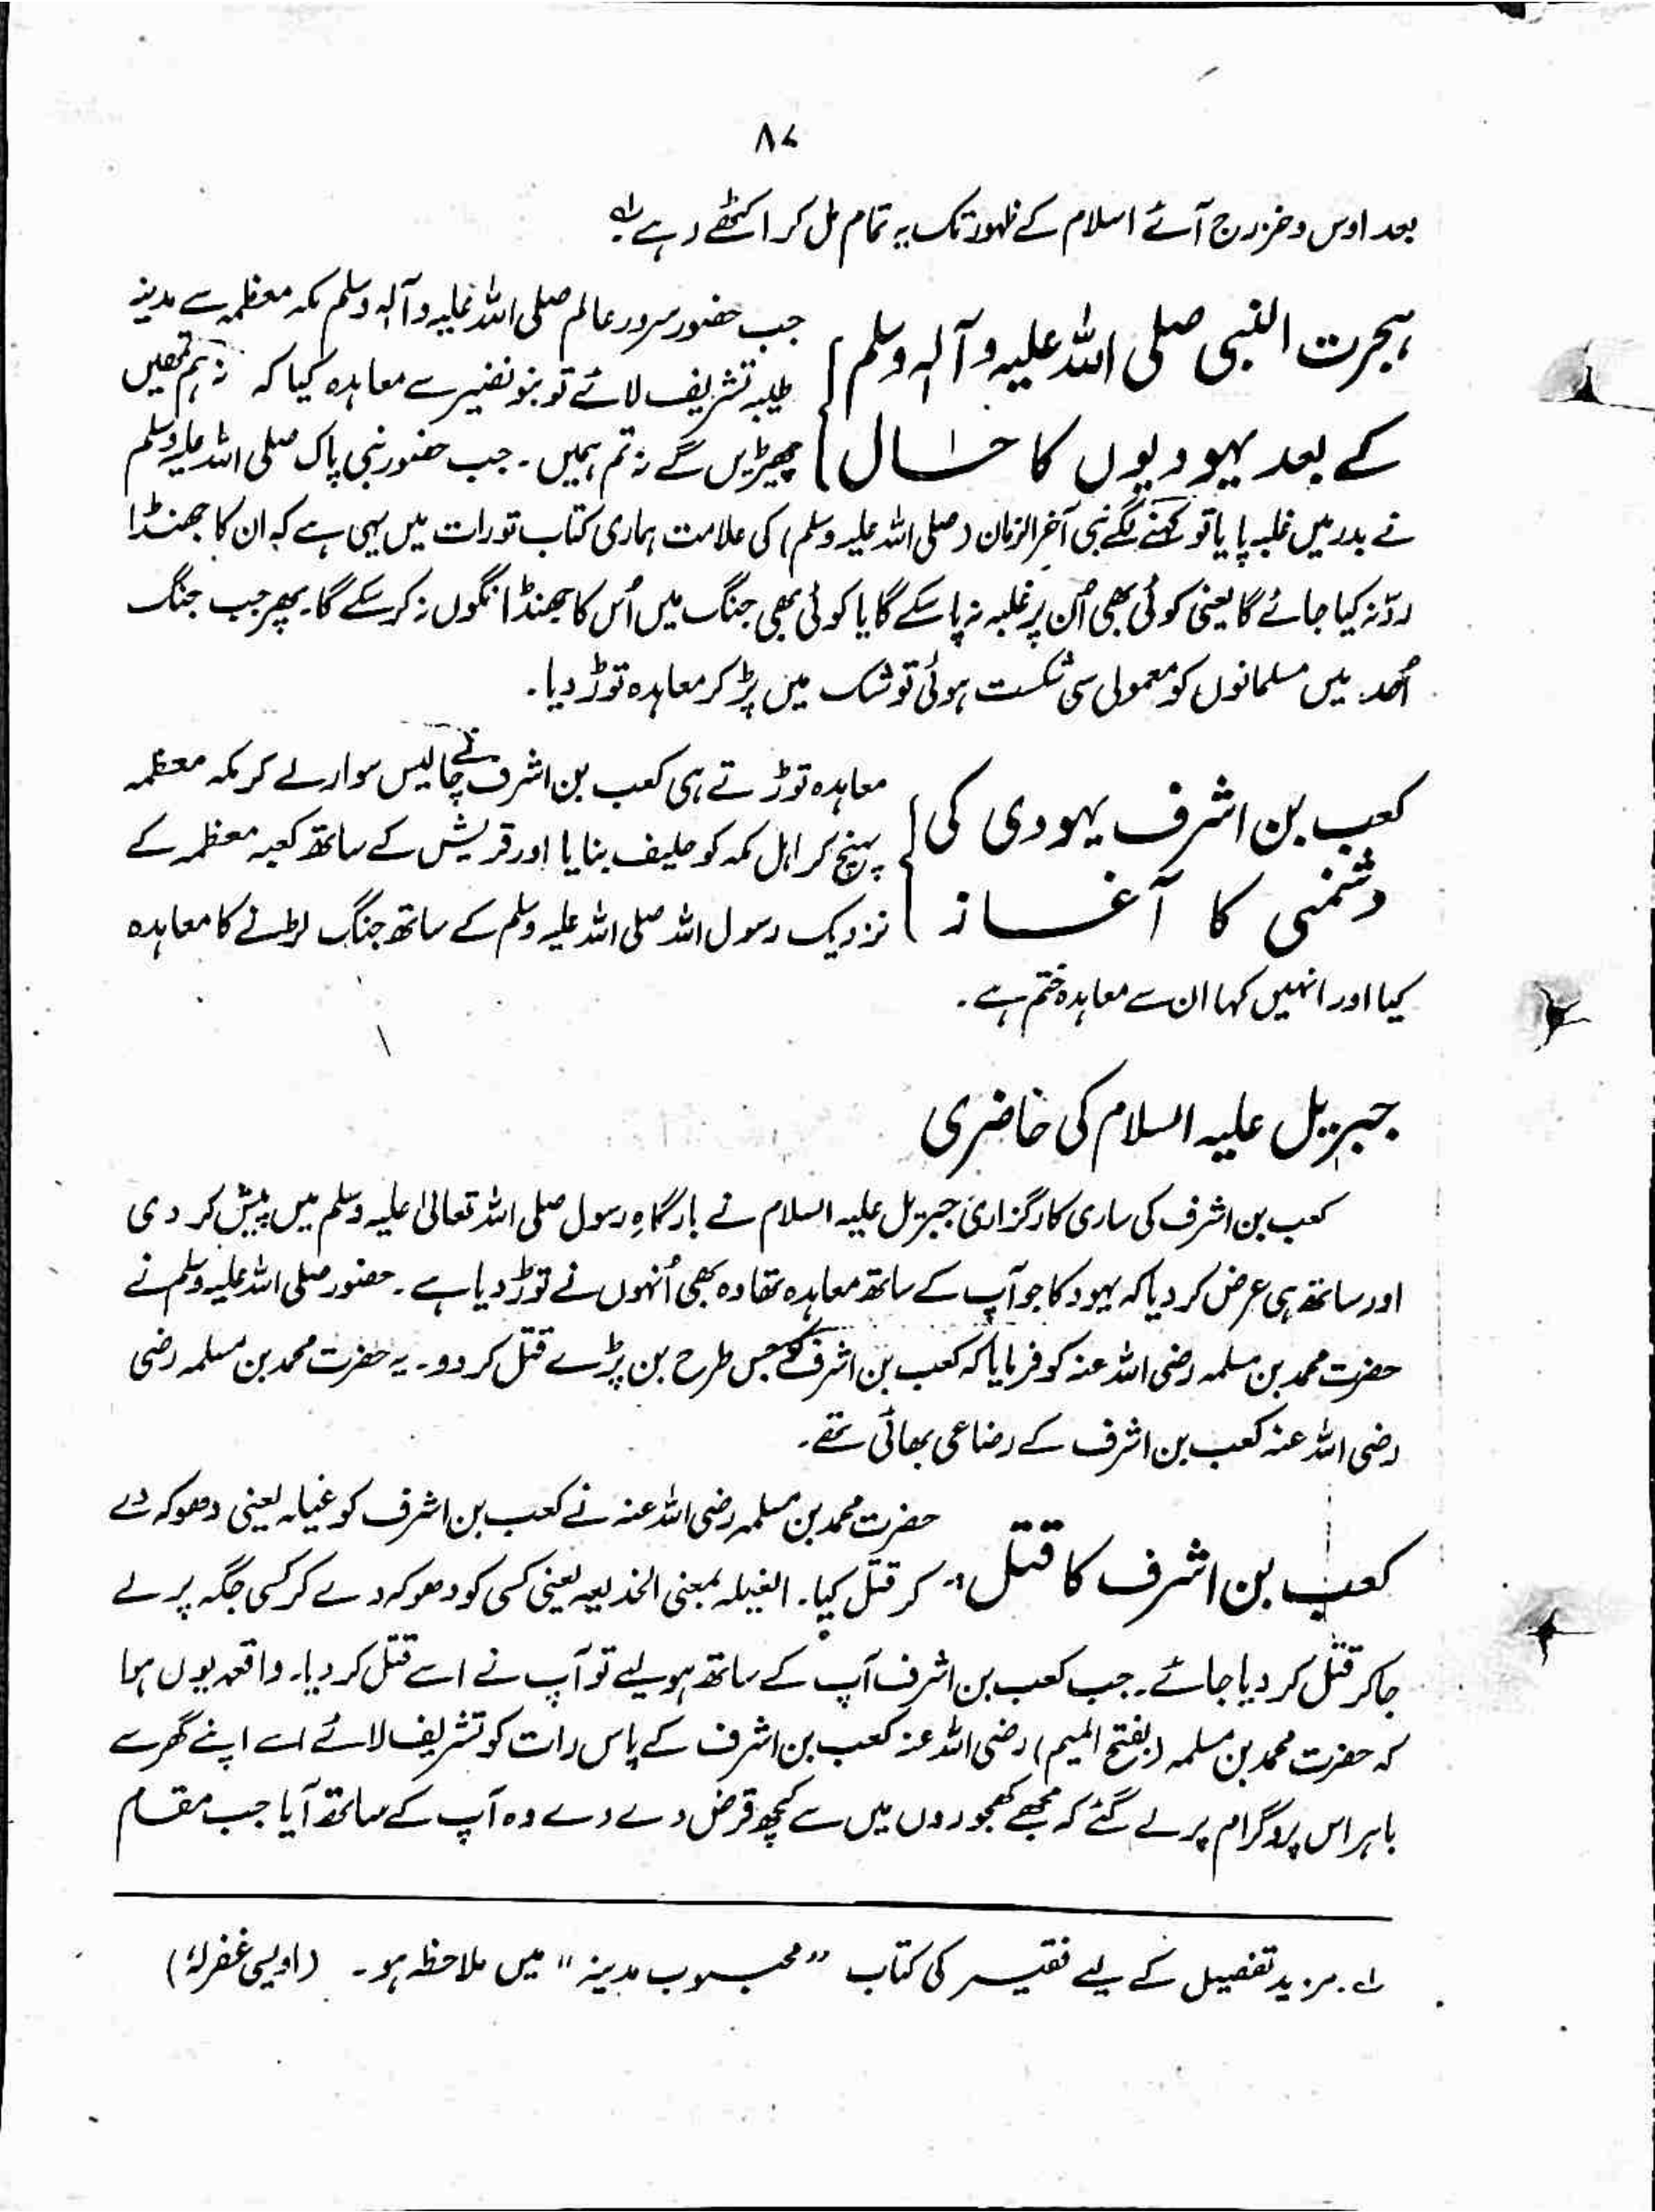 ۸۷
بعد اوس و خزرج آئے اسلام کے ظہور تک یہ تمام مل کر اکٹھے رہے لہ
ہجرت النبی صلی اللہ علیہ وآلہ وسلم
کے بعد یہودیوں کا حال
جب حضور سرور عالم صلی اللہ علیہ وآلہ وسلم مکہ معظمہ سے مدینہ
طیبہ تشریف لائے تو بنو نضیر سے معاہدہ کیا کہ نہ ہم تمھیں
چھیڑیں گے نہ تم ہمیں۔ جب حضور نبی پاک صلی اللہ علیہ وسلم
نے بدر میں غلبہ پایا تو کہنے لگے نبی آخر الزمان (صلی اللہ علیہ وسلم) کی علامت ہماری کتاب تورات میں یہی ہے کہ ان کا جھنڈا
ردّ نہ کیا جائے گا یعنی کوئی بھی اُن پر غلبہ نہ پا سکے گا یا کوئی بھی جنگ میں اُس کا جھنڈا نگوں نہ کر سکے گا۔ پھر جب جنگ
اُحد میں مسلمانوں کو معمولی سی شکست ہوئی تو شک میں پڑ کر معاہدہ توڑ دیا۔
کعب بن اشرف یہودی کی
دشمنی کا آغاز
معاہدہ توڑتے ہی کعب بن اشرف نے چالیس سوار لے کر مکہ معظمہ
پہنچ کر اہل مکہ کو حلیف بنایا اور قریش کے ساتھ کعبہ معظمہ کے
نزدیک رسول اللہ صلی اللہ علیہ وسلم کے ساتھ جنگ لڑنے کا معاہدہ
کیا اور انہیں کہا ان سے معاہدہ ختم ہے۔
جبریل علیہ السلام کی حاضری
کعب بن اشرف کی ساری کارگزاری جبریل علیہ السلام نے بارگاہِ رسول صلی اللہ تعالیٰ علیہ وسلم میں پیش کر دی
اور ساتھ ہی عرض کر دیا کہ یہود کا جو آپ کے ساتھ معاہدہ تھا وہ بھی اُنہوں نے توڑ دیا ہے۔ حضور صلی اللہ علیہ وسلم نے
حضرت محمد بن مسلمہ رضی اللہ عنہ کو فرمایا کہ کعب بن اشرف کو جس طرح بن پڑے قتل کر دو۔ یہ حضرت محمد بن مسلمہ رضی
رضی اللہ عنہ کعب بن اشرف کے رضاعی بھائی تھے۔
کعب بن اشرف کا قتل
حضرت محمد بن مسلمہ رضی اللہ عنہ نے کعب بن اشرف کو غیلہ یعنی دھوکہ دے
کر قتل کیا۔ الغیلہ بمعنی الخدیعہ یعنی کسی کو دھوکہ دے کر کسی جگہ پر لے
جا کر قتل کر دیا جائے۔ جب کعب بن اشرف آپ کے ساتھ ہو لیے تو آپ نے اسے قتل کر دیا۔ واقعہ یوں ہوا
کہ حضرت محمد بن مسلمہ (بفتح المیم) رضی اللہ عنہ کعب بن اشرف کے پاس رات کو تشریف لائے اسے اپنے گھر سے
باہر اس پروگرام پر لے گئے کہ مجھے کھجوروں میں سے کچھ قرض دے دے وہ آپ کے ساتھ آیا جب مقام
لہ۔ مزید تفصیل کے لیے فقیر کی کتاب "محبوب مدینہ" میں ملاحظہ ہو۔ (اویسی غفرلہٗ)